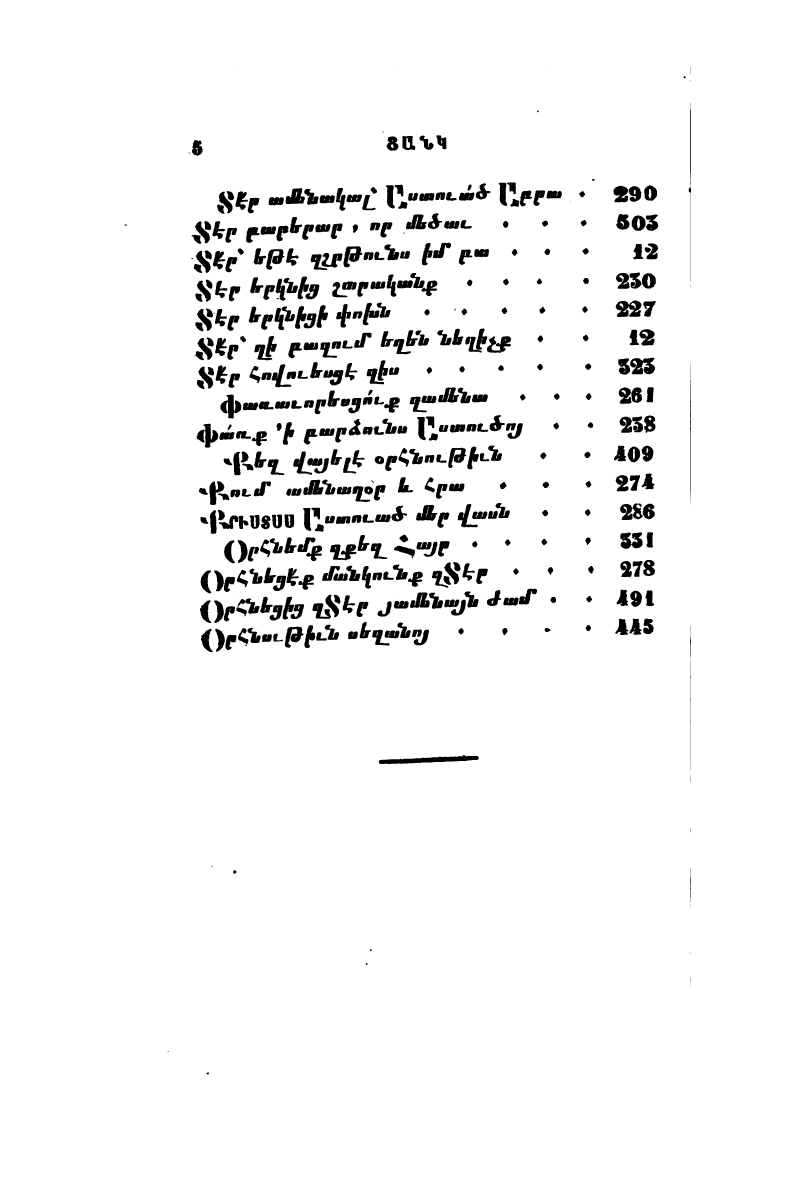 5 ՑԱՆԿ
Տէր ամենակալ՝ Աստուած Աբրա . 290
Տէր բարերար , որ մեծաւ . . . 503
Տէր՝ եթէ զշրթունս իմ բա . . . 12
Տէր երկնից շարականք . . . . 230
Տէր երկնիցի փոխն . . . . . 227
Տէր՝ զի բազում եղեն նեղիչք . . 12
Տէր հովուեսցէ զիս . . . . . 323
Փառաւորեսցո՛ւք զամենա . . . 261
Փա՛ռք ՚ի բարձունս Աստուծոյ . . 238
Քեզ վայելէ օրհնութիւն . . 409
Քում ամենաղօր և հրա . . . 274
ՔՐԻՍՏՈՍ Աստուած մեր վասն . . 286
Օրհնեմք զքեզ Հայր . . . . 331
Օրհնեցէ՛ք մանկունք զՏէր . . . 278
Օրհնեցից զՏէր յամենայն ժամ . . 491
Օրհնութիւն սեղանոյ . . . . 445